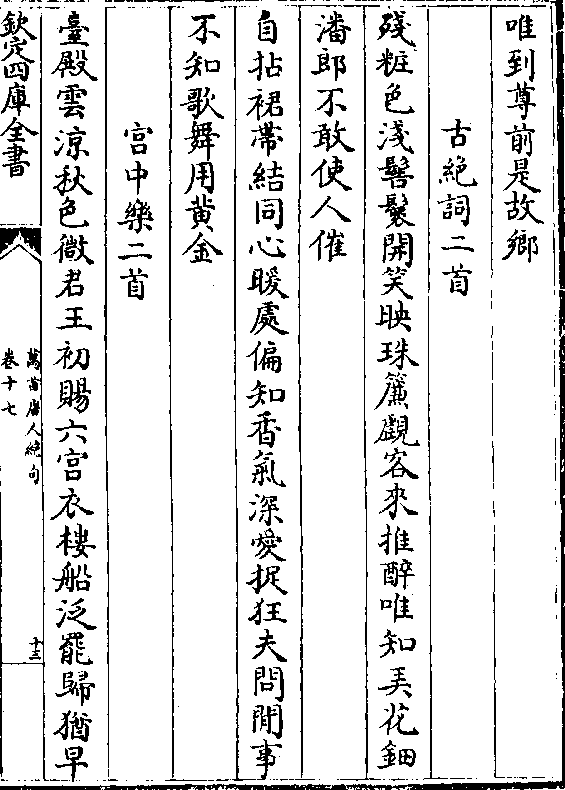 唯到尊前是故鄉
古絶詞二首
殘粧色淺髻鬟開笑映珠簾覷客來推醉唯知弄花鈿
潘郎不敢使人催
自拈裙帶結同心暖處偏知香氣深愛捉狂夫問閒事
不知歌舞用黄金
宫中樂二首
臺殿雲涼秋色微君王初賜六宫衣樓船泛罷歸猶早
欽定四庫全書
萬首唐人絶句
卷十七
十三